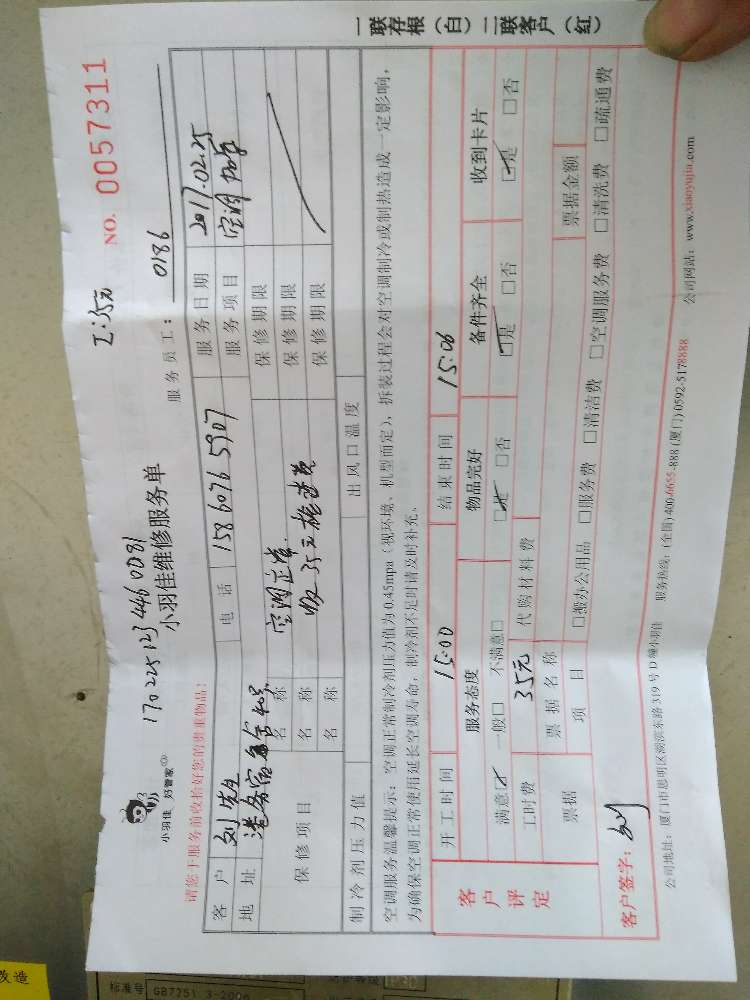 一联存根（白）二联客户（红）
NO. 0057311
Σ:35元
1702251234460081
小羽佳 好管家
小羽佳维修服务单
服务员工： 0186
请您于服务前收拾好您的贵重物品：
客户 刘先生 电话 15860765907 服务日期 2017.02.25
地址 港务宿舍 服务项目 空调
保修项目 名称 空调正常 保修期限
名称 收35元检查费 保修期限
名称 保修期限
制冷剂压力值 出风口温度
空调服务温馨提示：空调正常制冷剂压力值为0.45mpa（视环境、机型而定），拆装过程会对空调制冷或制热造成一定影响，
为确保空调正常使用延长空调寿命，制冷剂不足时请及时补充。
客户评定 开工时间 15:00 结束时间 15:06
服务态度 物品完好 备件齐全 收到卡片
满意☑ 一般□ 不满意□ ☑是 □否 ☑是 □否 ☑是 □否
工时费 35元 代购材料费
票据 票据名称 票据金额
项目 □报办公用品 □服务费 □清洁费 □空调服务费 □清洗费 □疏通费
客户签字： 刘
公司地址：厦门市思明区湖滨东路319号D幢小羽佳 服务热线：(全国)400-6655-888 (厦门)0592-5178888 公司网站：www.xiaoyujia.com
改造
标准号 GB7251.3-2006